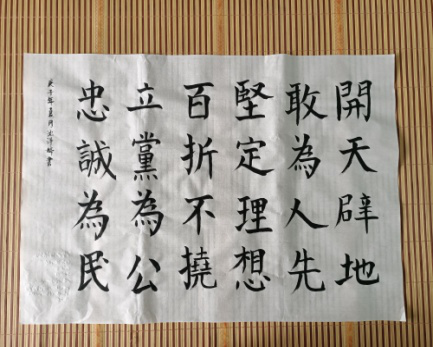 開天辟地
敢為人先
堅定理想
百折不撓
立黨為公
忠誠為民